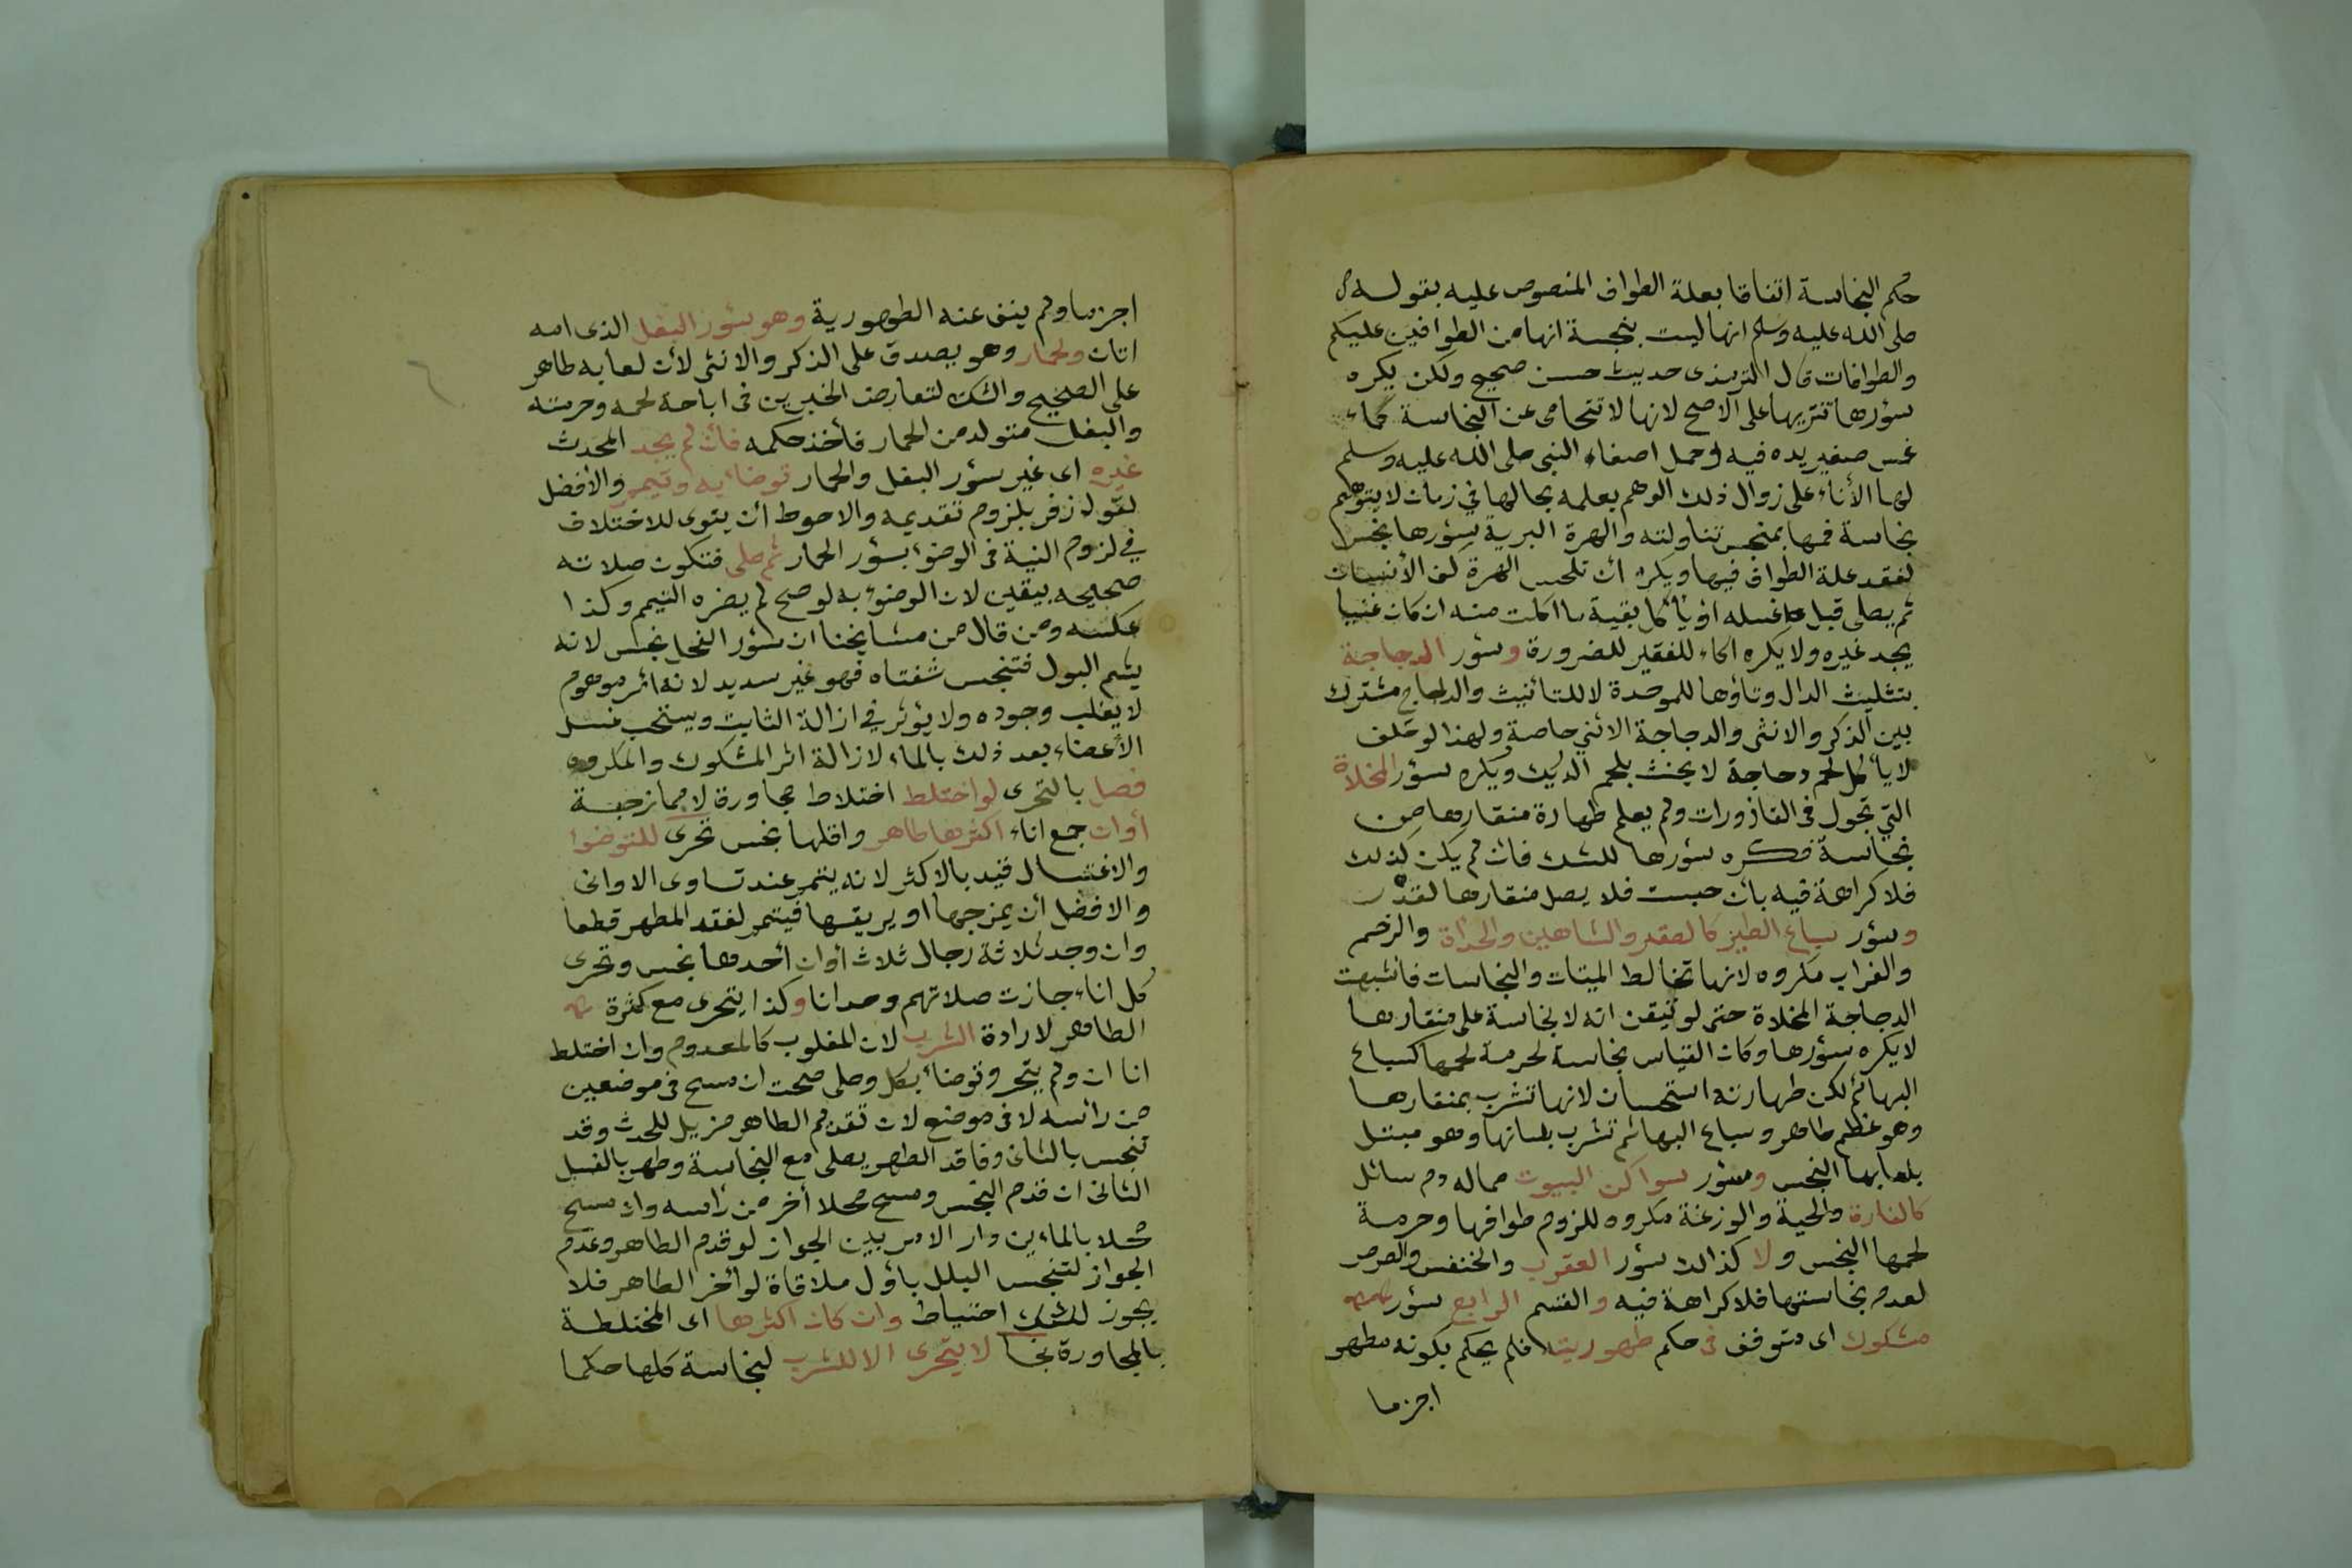 حكم النجاسة اتفاقا بعلة الطواف المنصوص عليه بقوله
صلى الله عليه وسلم انها ليست بنجسة انها من الطوافين عليكم
والطوافات قال الترمذى حديث حسن صحيح ولكن يكره
سؤرها تنزيها على الاصح لانها لا تتحامى عن النجاسة كماء
غمس صغير يده فيه وحمل اصغاء النبى صلى الله عليه وسلم
لها الأناء على زوال ذلك الوهم بعلمه بحالها في زمان لا يتوهم
نجاسة فمها بمنجس تناولته والهرة البرية سؤرها نجس
لفقد علة الطواف فيها ويكره ان تلحس الهرة كف الأنسان
ثم يصلى قبل غسله او يأكل بقية ما اكلت منه ان كان غنيا
يجد غيره ولا يكره اكله للفقير للضرورة وسؤر الدجاجة
بتثليث الدال وتاؤها للوحدة لا للتأنيث والدجاج مشترك
بين الذكر والانثى والدجاجة الانثي خاصة ولهذا لو حلف
لا يأكل لحم دجاجة لا يحنث بلحم الديك ويكره سؤر المخلاة
التي تجول فى القاذورات ولم يعلم طهارة منقارها من
نجاسة فكره سؤرها للشك فان لم يكن كذلك
فلا كراهة فيه بأن حبست فلا يصل منقارها لقذر
وسؤر سباع الطير كالصقر والشاهين والحدأة والرخم
والغراب مكروه لانها تخالط الميتات والنجاسات فاشبهت
الدجاجة المخلاة حتى لو تيقن انه لا نجاسة على منقارها
لا يكره سؤرها وكان القياس نجاسة لحرمة لحمها كسباع
البهائم لكن طهارته استحسان لانها تشرب بمنقارها
وهو عظم طاهر وسباع البهائم تشرب بلسانها وهو مبتل
بلعابها النجس وسؤر سواكن البيوت مما له دم سائل
كالفارة والحية والوزغة مكروه للزوم طوافها وحرمة
لحمها النجس ولا كذالك سؤر العقرب والخنفس والصرصر
لعدم نجاستها فلا كراهة فيه والقسم الرابع سؤر
مشكوك اى متوقف فى حكم طهوريته فلم يحكم بكونه مطهر
اجزما
اجزما ولم ينف عنه الطهورية وهو سؤر البغل الذى امه
اتان والحمار وهو يصدق على الذكر والانثى لأن لعابه طاهر
على الصحيح والشك لتعارض الخبرين فى اباحة لحمه وحرمته
والبغل متولد من الحمار فأخذ حكمه فأن لم يجد المحدث
غيره اى غير سؤر البغل والحمار توضأ به وتيمم والأفضل
لقول زفر بلزوم تقديمه والاحوط ان ينوى للاختلاف
في لزوم النية فى الوضوء بسؤر الحمار ثم صلى فتكون صلاته
صحيحه بيقين لان الوضوء به لو صح لم يضره التيمم وكذا
عكسه ومن قال من مشايخنا ان سؤر الفحل نجس لانه
يشم البول فتنجس شفتاه فهو غير سديد لانه امر موهوم
لا يغلب وجوده ولا يؤثر في ازالة الثابت ويستحب غسل
الأعضاء بعد ذلك بالماء لازالة اثر المشكوك والمكروه
فصل بالتحرى لو اختلط اختلاط مجاورة لا ممازجة
أوان جمع اناء اكثرها طاهر واقلها نجس تحرى للتوضوا
والاغتسال قيد بالاكثر لانه يتمم عند تساوى الاوانى
والافضل أن يمزجها او يريقها فيتمم لفقد المطهر قطعا
وان وجد ثلاثة رجال ثلاث أوان أحدها نجس وتحرى
كل اناء جازت صلاتهم وحدانا وكذا يتحرى مع كثرة
الطاهر لارادة الشرب لان المغلوب كالمعدوم وان اختلط
اناان ولم يتحر وتوضأ بكل وصلى صحت ان مسح فى موضعين
من رأسه لا فى موضع لان تقدم الطاهر مزيل للحدث وقد
تنجس بالثانى وفاقد الطهر يصلى مع النجاسة وطهر بالغسل
الثانى ان قدم النجس ومسح محلا أخر من رأسه وان مسح
محلا بالماءين دار الامر بين الجواز لو قدم الطاهر وعدم
الجواز لتنجس البلل بأول ملاقاة لو أخر الطاهر فلا
يجوز للشك احتياط وان كان اكثرها اى المختلطة
بالمجاورة نجسا لا يتحرى الا للشرب لنجاسة كلها حكما